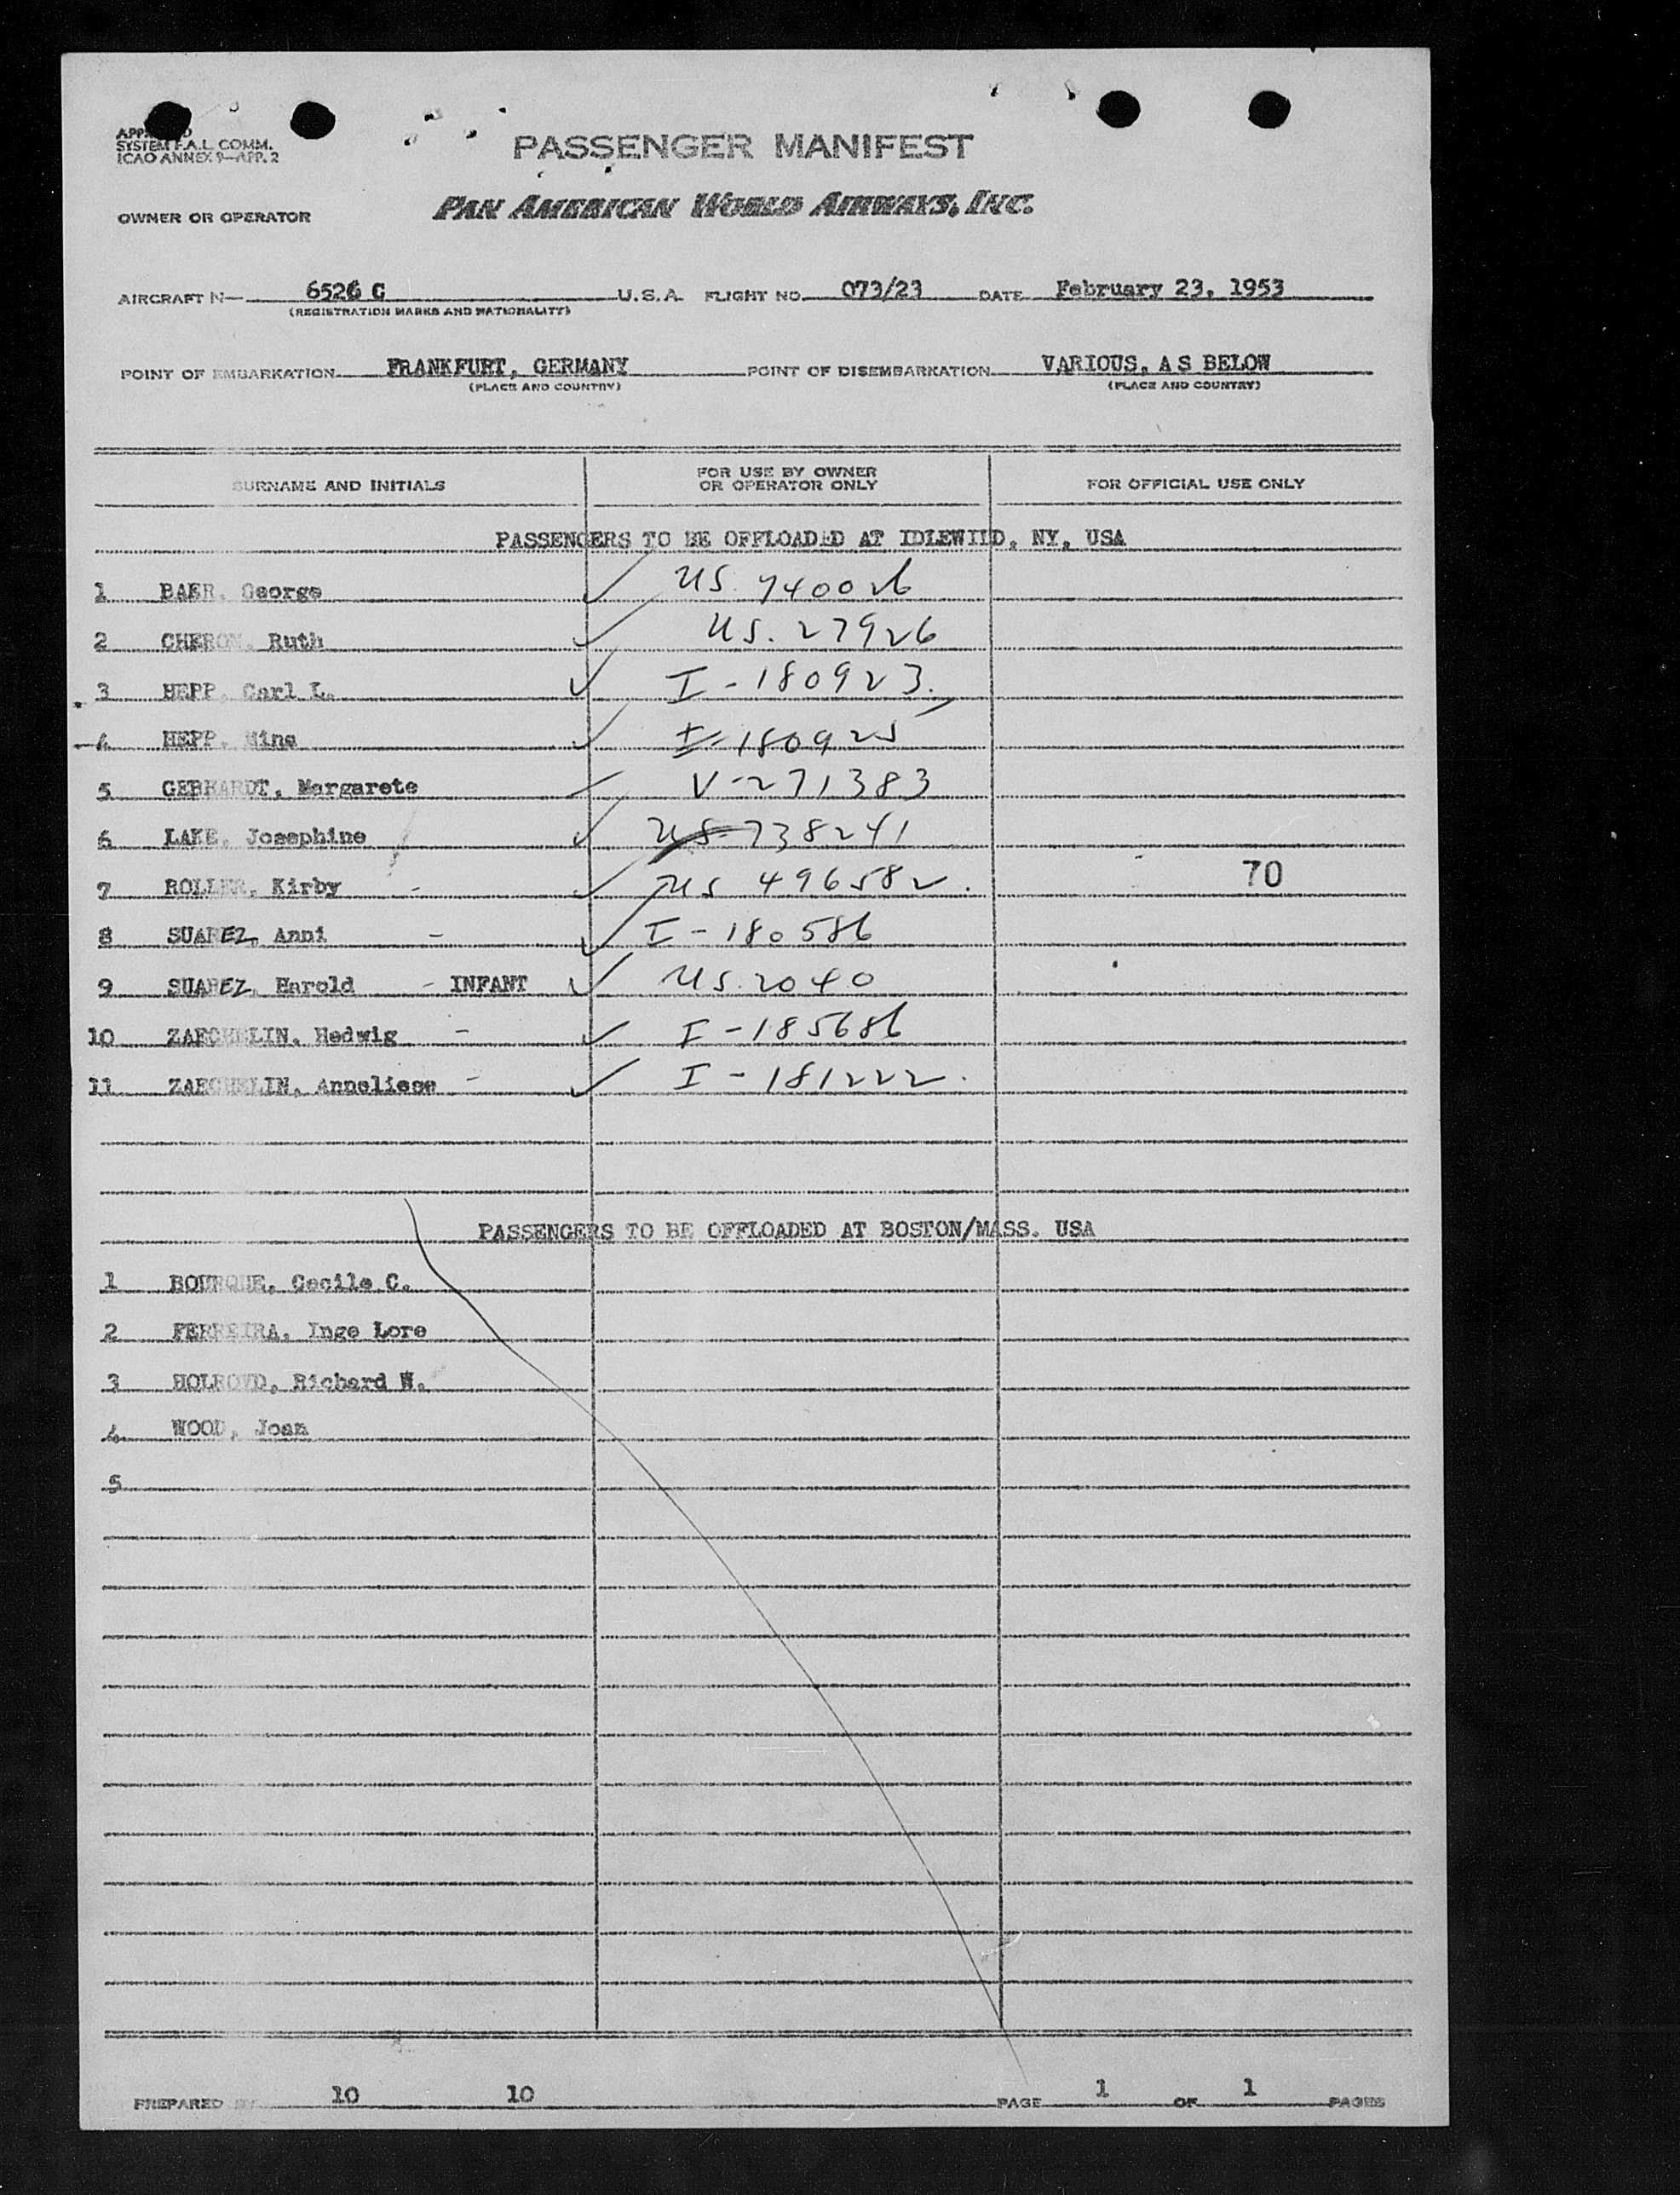 APPROVED
SYSTEM F.A.L. COMM.
ICAO ANNEX 9—APP. 2
PASSENGER MANIFEST
OWNER OR OPERATOR PAN AMERICAN WORLD AIRWAYS, INC.
AIRCRAFT N— 6526 C U.S.A. FLIGHT NO. 073/23 DATE February 23, 1953
(REGISTRATION MARKS AND NATIONALITY)
POINT OF EMBARKATION FRANKFURT, GERMANY POINT OF DISEMBARKATION VARIOUS, AS BELOW
(PLACE AND COUNTRY) (PLACE AND COUNTRY)
SURNAME AND INITIALS FOR USE BY OWNER OR OPERATOR ONLY FOR OFFICIAL USE ONLY
PASSENGERS TO BE OFFLOADED AT IDLEWILD, NY, USA
1 BAER, George ✓ US. 740026
2 CHERON, Ruth ✓ US. 27926
3 HEPP, Carl L. ✓ I-180923.
4 HEPP, Mina ✓ I-180925
5 GEBHARDT, Margarete ✓ V-271383
6 LAKE, Josephine ✓ US-738241
7 ROLLER, Kirby - ✓ US 496582. 70
8 SUAREZ, Anni - ✓ I-180586
9 SUAREZ, Harold - INFANT ✓ US. 2040
10 ZAECHELIN, Hedwig - ✓ I-185686
11 ZAECHELIN, Anneliese - ✓ I-181222.
PASSENGERS TO BE OFFLOADED AT BOSTON/MASS. USA
1 BOURQUE, Cecile C.
2 FERREIRA, Inge Lore
3 HOLROYD, Richard W.
4 WOOD, Joan
5
PREPARED BY 10 10 PAGE 1 OF 1 PAGES